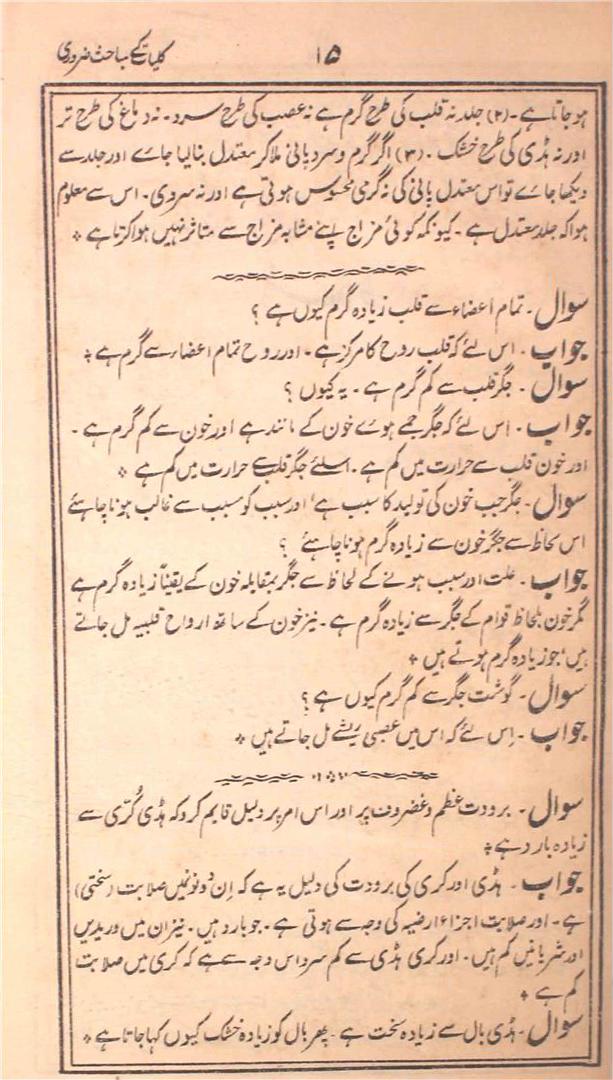 کلیات کے مباحث ضروری
۱۵
ہو جاتا ہے۔ (۲) جلد نہ قلب کی طرح گرم ہے نہ عصب کی طرح سرد۔ نہ دماغ کی طرح تر
اور نہ ہڈی کی طرح خشک۔ (۳) اگر گرم و سرد پانی ملا کر معتدل بنالیا جاے اور جلد سے
دیکھا جاے تو اس معتدل پانی کی نہ گرمی محسوس ہوتی ہے اور نہ سردی۔ اس سے معلوم
ہوا کہ جلد معتدل ہے۔ کیونکہ کوئی مزاج اپنے مشابہ مزاج سے متاثر نہیں ہوا کرتا ہے ٭
سوال۔ تمام اعضاء سے قلب زیادہ گرم کیوں ہے ؟
جواب۔ اس لئے کہ قلب روح کا مرکز ہے۔ اور روح تمام اعضاء سے گرم ہے ٭
سوال۔ جگر قلب سے کم گرم ہے۔ یہ کیوں ؟
جواب۔ اس لئے کہ جگر جمے ہوے خون کے مانند ہے اور خون سے کم گرم ہے۔
اور خون قلب سے حرارت میں کم ہے۔ اسلئے جگر قلب سے حرارت میں کم ہے ٭
سوال۔ جگر جب خون کی تولید کا سبب ہے، اور سبب کو مسبب سے غالب ہونا چاہئے
اس لحاظ سے جگر خون سے زیادہ گرم ہونا چاہئے ؟
جواب۔ علت اور سبب ہونے کے لحاظ سے جگر بمقابلہ خون کے یقیناً زیادہ گرم ہے
مگر خون بلحاظ قوام کے جگر سے زیادہ گرم ہے۔ نیز خون کے ساتھ ارواح قلبیہ مل جاتے
ہیں، جو زیادہ گرم ہوتے ہیں ٭
سوال۔ گوشت جگر سے کم گرم کیوں ہے ؟
جواب۔ اِس لئے کہ اس میں عصبی ریشے مل جاتے ہیں ٭
سوال۔ برودت عظم و غضروف پر اور اس امر پر دلیل قایم کرو کہ ہڈی کُرّی سے
زیادہ بارد ہے ٭
جواب۔ ہڈی اور کری کی برودت کی دلیل یہ ہے کہ اِن دونوں میں صلابت (سختی)
ہے۔ اور صلابت اجزاء ارضیہ کی وجہ سے ہوتی ہے۔ جو بارد ہیں۔ نیز ان میں وریدیں
اور شریانیں کم ہیں۔ اور کری ہڈی سے کم سرد اس وجہ سے ہے کہ کری میں صلابت
کم ہے ٭
سوال۔ ہڈی بال سے زیادہ سخت ہے۔ پھر بال کو زیادہ خشک کیوں کہا جاتا ہے ٭